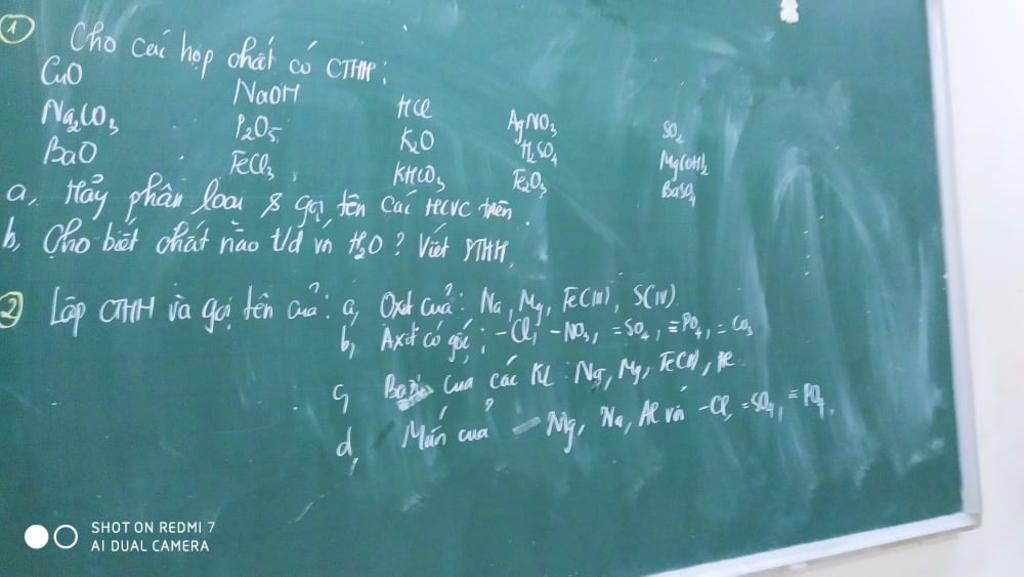 1 Cho các hợp chất có CTHH:
CuO NaOH HCl AgNO3 SO2
Na2CO3 P2O5 K2O H2SO4 Mg(OH)2
BaO FeCl3 KHCO3 Fe2O3 BaSO4
a, Hãy phân loại & gọi tên các HCVC trên.
b, Cho biết chất nào t/d với H2O? Viết PTHH.
2 Lập CTHH và gọi tên của: a, Oxit của: Na, Mg, Fe(III), S(IV)
b, Axit có gốc: -Cl, -NO3, =SO4, ≡PO4, =CO3
c, Bazơ của các KL: Na, Mg, Fe(II), Al
d, Muối của Mg, Na, Al với -Cl, =SO4, ≡PO4.
SHOT ON REDMI 7
AI DUAL CAMERA